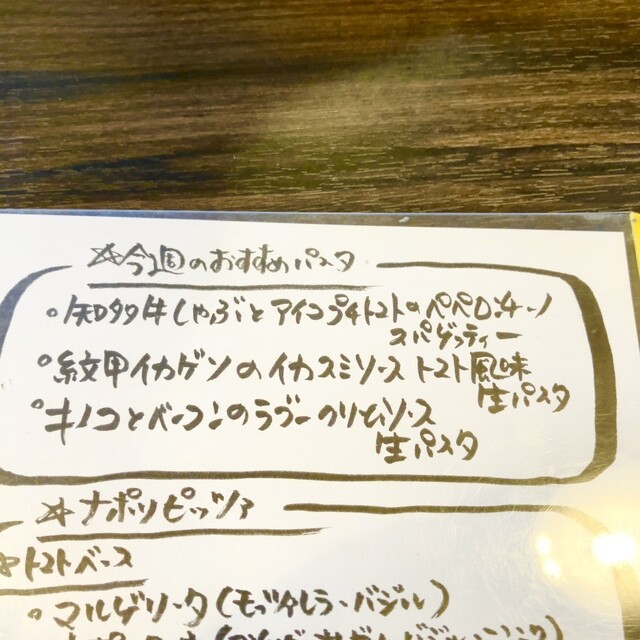 ☆今週のおすすめパスタ
。知多牛しゃぶとアイコプチトマトのペペロンチーノ
スパゲッティー
。紋甲イカゲソのイカスミソース トマト風味
生パスタ
。キノコとベーコンのラグー クリームソース
生パスタ
☆ナポリピッツァ
☆トマトベース
。マルゲリータ(モッツァレラ・バジル)